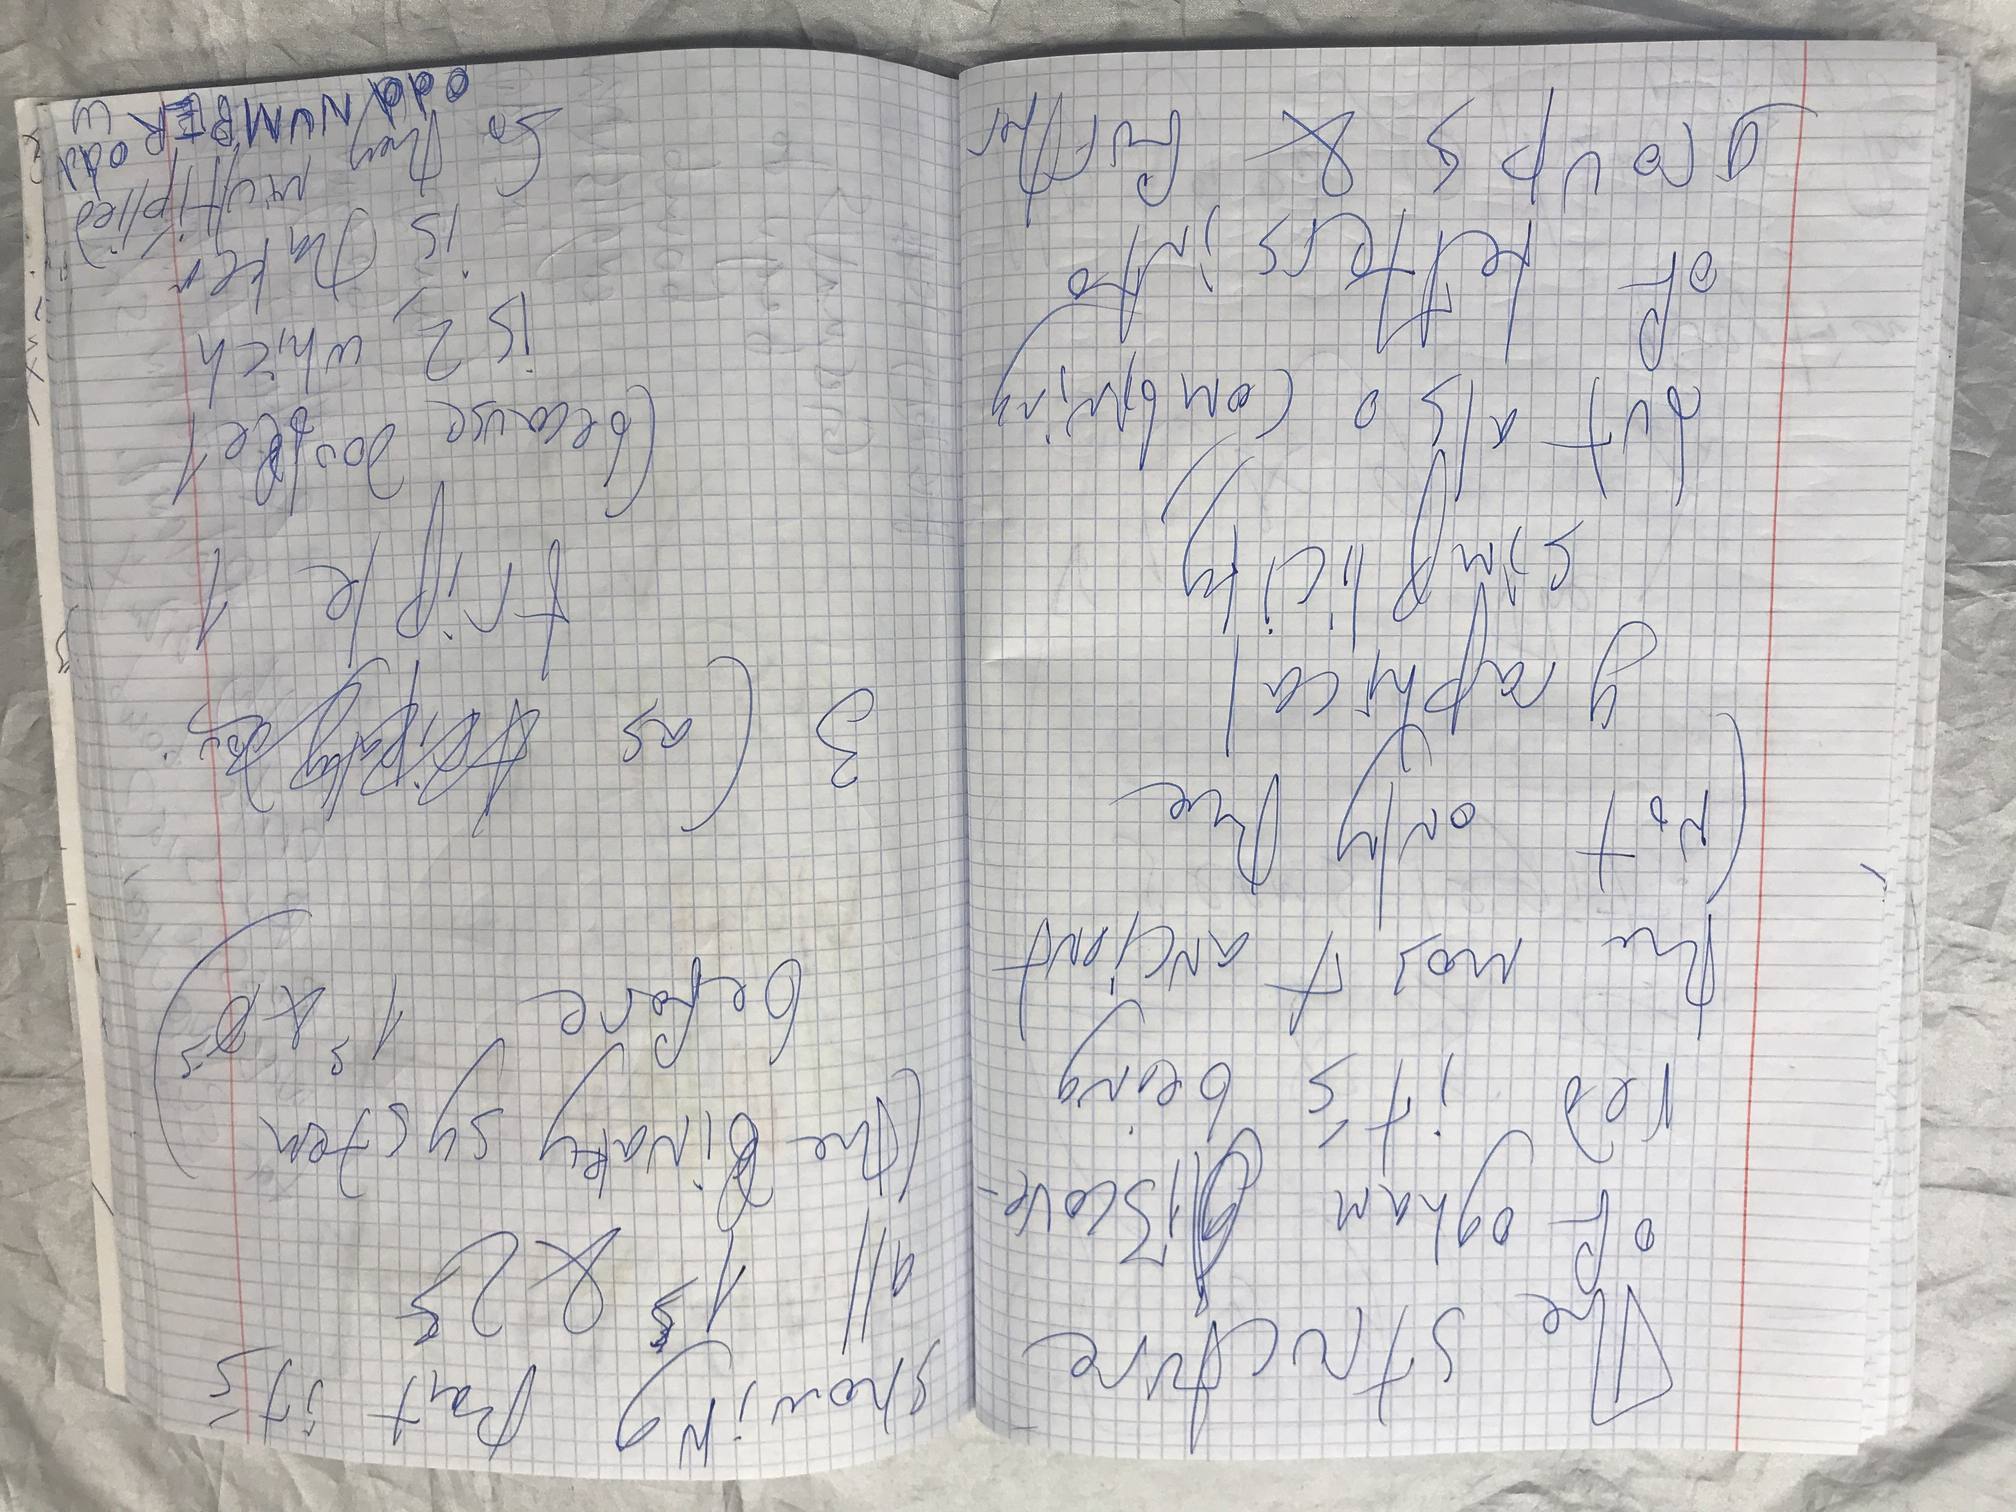 The structure
of ogham discove-
red it's being
the most ancient
(not only the
graphical
simplicity)
but also combining
of letters into
groups & further
showing that it's
all 1s & 2s
(the BiNARy system
before 1s & 0s)
3 (as
triple 1
(because double 1
is 2, which
is taken
So they multiplied
odd NUMBER odd